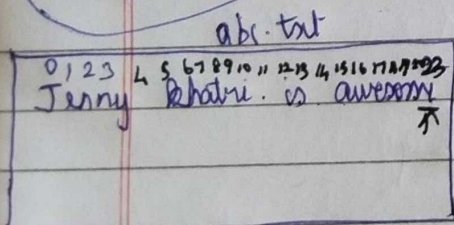 abc. txt
0 1 2 3 4 5 6 7 8 9 10 11 12 13 14 15 16 17 18 19 20 23
Jenny Khatri. is awesome